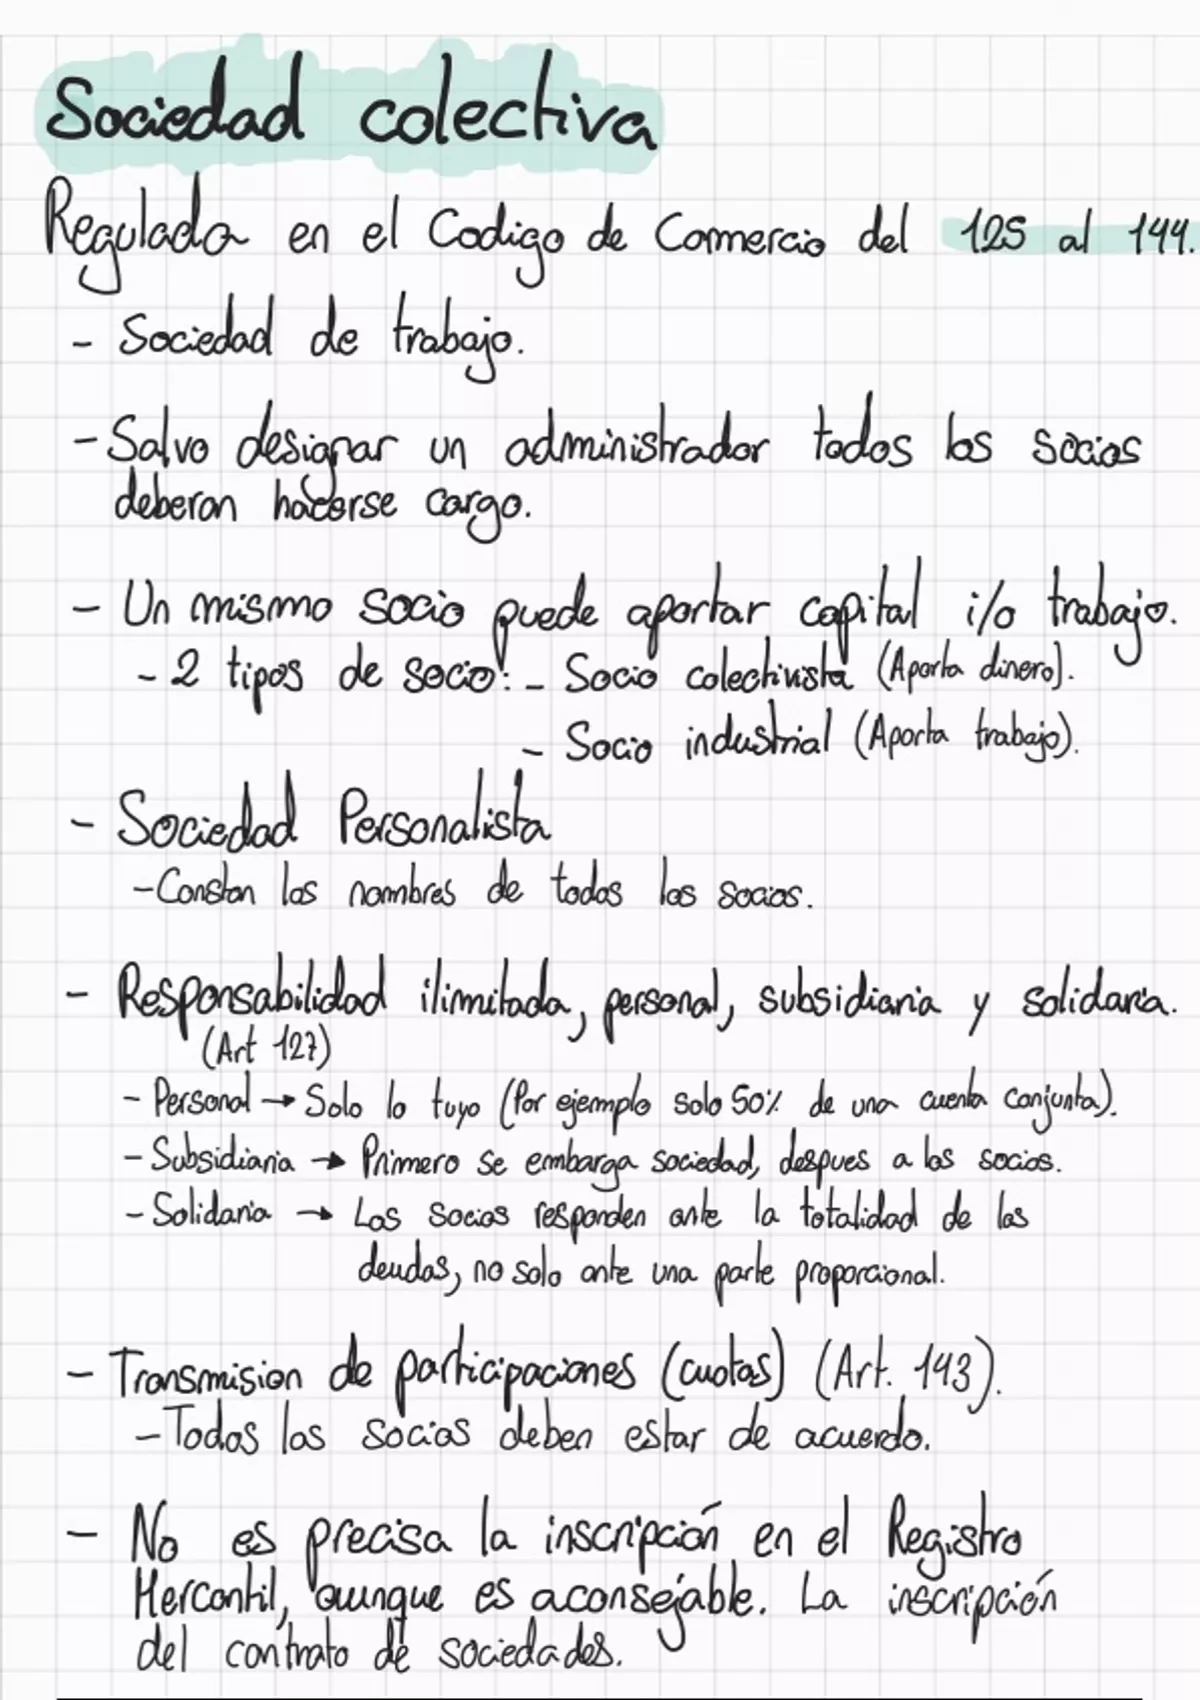 Sociedad colectiva
Regulada en el Codigo de Comercio del 125 al 144.
- Sociedad de trabajo.
- Salvo designar un administrador todos los socios
deberan hacerse cargo.
- Un mismo socio puede aportar capital i/o trabajo.
- 2 tipos de socio: - Socio colectivista (Aporta dinero).
- Socio industrial (Aporta trabajo).
- Sociedad Personalista
- Constan los nombres de todos los socios.
- Responsabilidad ilimitada, personal, subsidiaria y solidaria.
(Art 127)
- Personal → Solo lo tuyo (Por ejemplo solo 50% de una cuenta conjunta).
- Subsidiaria → Primero se embarga sociedad, despues a los socios.
- Solidaria → Los socios responden ante la totalidad de las
deudas, no solo ante una parte proporcional.
- Transmision de participaciones (cuotas) (Art. 143).
- Todos los socios deben estar de acuerdo.
- No es precisa la inscripción en el Registro
Mercantil, aunque es aconsejable. La inscripción
del contrato de sociedades.